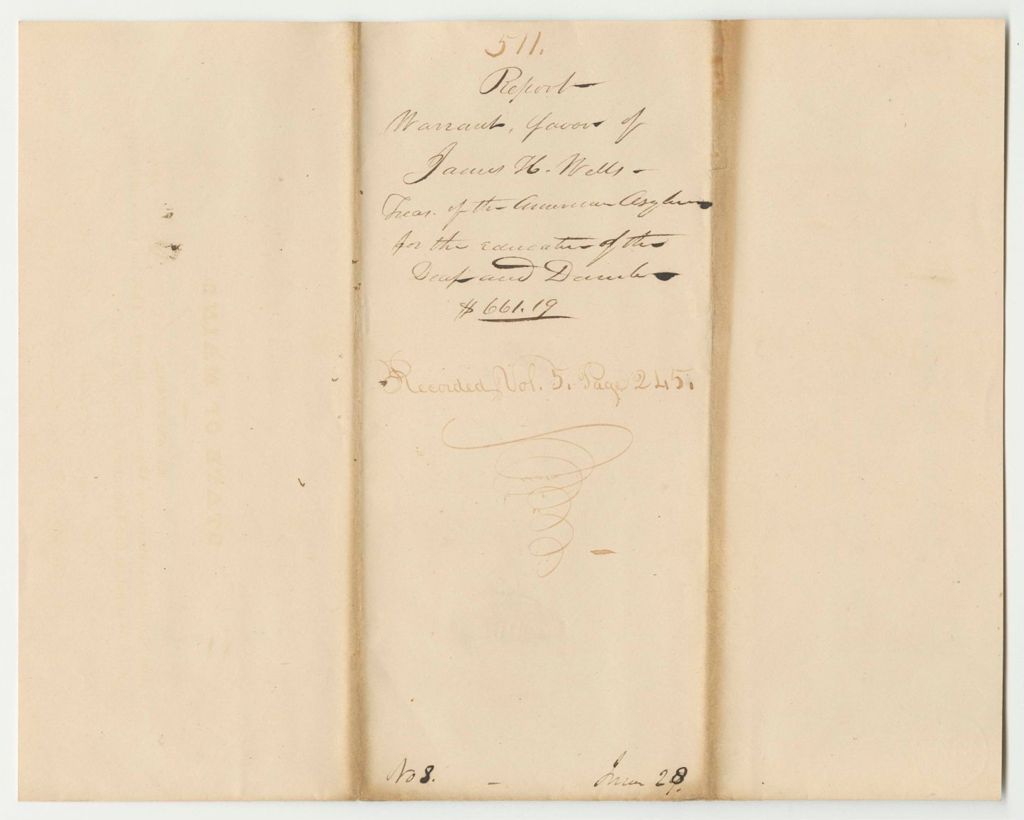 511.
Report
Warrant, favor of
James H. Wells -
Treas. of the American Asylum
for the education of the
Deaf and Dumb
$661.19
Recorded Vol. 5. Page 245.
No 8.
June 28.